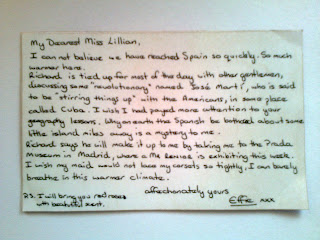 My Dearest Miss Lillian,
I can not believe we have reached Spain so quickly. So much
warmer here.
Richard is tied up for most of the day with other gentlemen,
discussing some "revolutionary" named José Marti, who is said
to be "stirring things up" with the Americans, in some place
called Cuba. I wish I had payed more attention to your
geography lessons. Why on earth the Spanish be bothered about some
little island miles away is a mystery to me.
Richard says he will make it up to me by taking me to the Prada
Museum in Madrid, where a Mr Renoir is exhibiting this week.
I wish my maid would not lace my corsets so tightly, I can barely
breathe in this warmer climate.
affectionately yours
P.S. I will bring you red roses
with beautiful scent.
Effie xxx